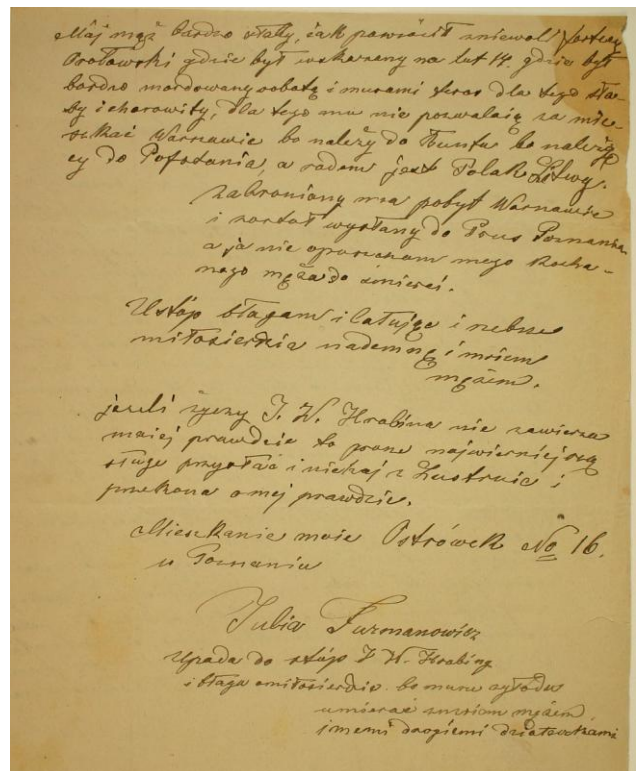 Mój mąż bardzo słaby, jak powrócił zniewoli fortecy
gdzie był wskazany na lat 14. gdzie był
bardzo mordowany robotą i murami teras dla tego sła-
by i chorowity, dla tego mu nie pozwalają za mie-
szkać Warszawie bo należy do Buntu bo należy
cy do Pofstania, a rodem jest Polak Litwy.
Zabroniony ma pobyt Warszawie
i został wysłany do Prus Poznania
a ja nie opuszczam mego Kocha-
nego męża do śmierci.
Ustóp błagam i całuję i
miłosierdzia nademną i moiem
mężem.
jezeli życzy J. W. Hrabina nie zawierza
maiej prawdzie to prosze najwierniejszą
sługe przysłać i niehaj z Lustruie i
przekona o mej prawdzie.
Mieszkanie moie Ostrówek No 16.
w Poznaniu
Julia Furmanowicz
Upada do stóp J W. Hrabiny
i błaga o miłosierdzie. bo musze zgłodu
umierać zmoiem mężem
i memi drogiemi dziateczkami